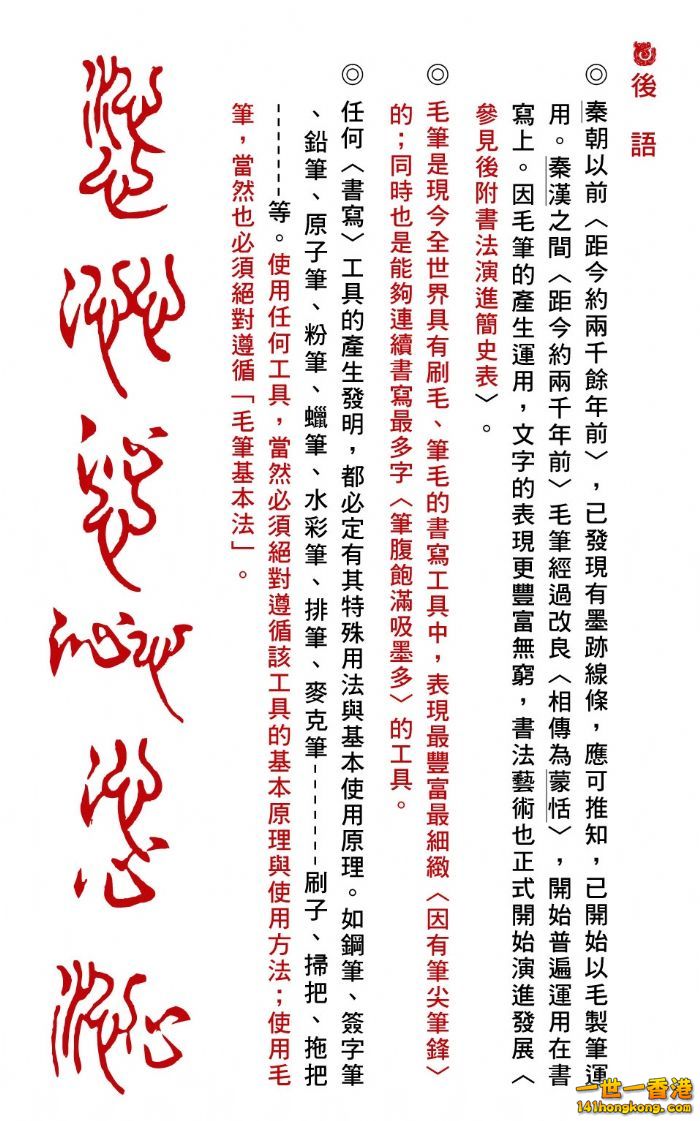 後語
◎秦朝以前〈距今約兩千餘年前〉，已發現有墨跡線條，應可推知，已開始以毛製筆運
用。秦漢之間〈距今約兩千年前〉毛筆經過改良〈相傳為蒙恬〉，開始普遍運用在書
寫上。因毛筆的產生運用，文字的表現更豐富無窮，書法藝術也正式開始演進發展〈
參見後附書法演進簡史表〉。
◎毛筆是現今全世界具有刷毛、筆毛的書寫工具中，表現最豐富最細緻〈因有筆尖筆鋒〉
的；同時也是能夠連續書寫最多字〈筆腹飽滿吸墨多〉的工具。
◎任何〈書寫〉工具的產生發明，都必定有其特殊用法與基本使用原理。如鋼筆、簽字筆
、鉛筆、原子筆、粉筆、蠟筆、水彩筆、排筆、麥克筆------刷子、掃把、拖把
------等。使用任何工具，當然必須絕對遵循該工具的基本原理與使用方法；使用毛
筆，當然也必須絕對遵循「毛筆基本法」。
一世一香港
141hongkong.com